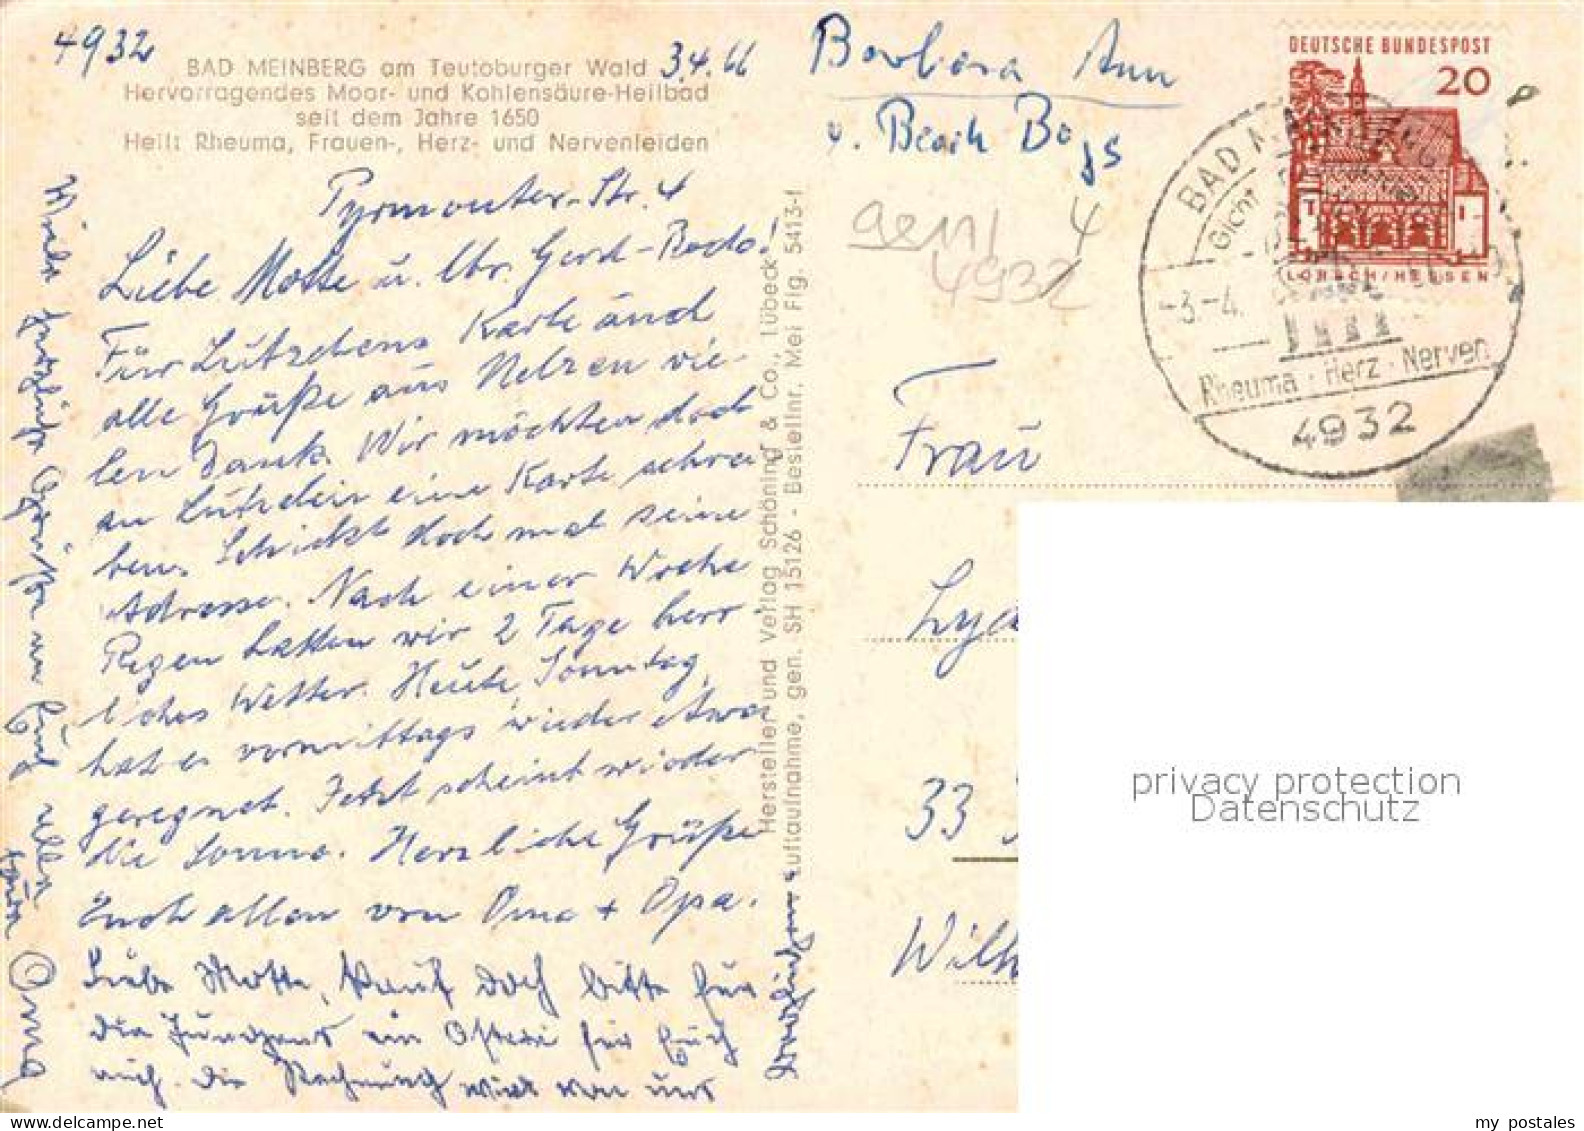 4932
BAD MEINBERG am Teutoburger Wald 3.4.66
Hervorragendes Moor- und Kohlensäure-Heilbad
seit dem Jahre 1650
Heilt Rheuma, Frauen-, Herz- und Nervenleiden
Pyrmonter-Str. 4
Liebe Motte u. lbr. Gerd-Bodo!
Für Lützchens Karte und
alle Grüße aus Uelzen vie-
len Dank. Wir möchten doch
an Lützchen eine Karte schrei
ben. Schickt doch mal seine
Adresse. Nach einer Woche
Regen hatten wir 2 Tage herr-
liches Wetter. Heute, Sonntag,
hat es vormittags wieder etwas
geregnet. Jetzt scheint wieder
die Sonne. Herzliche Grüße
Euch allen von Oma + Opa.
Liebe Motte, kauf doch bitte für
die Jungens ein Osterei für Euch
auch. die Rechnung wird von uns
Viele herzliche Grüße an Euch alle
Eure Oma
Hersteller und Verlag Schöning & Co., Lübeck
Luftaufnahme, gen. SH 15126 - Bestellnr. Mei Flg. 5413-f
Barbara Ann
v. Beach Boys
4
4932
DEUTSCHE BUNDESPOST
20
LORSCH/HESSEN
BAD MEINBERG
Gicht
-3.-4.
Rheuma · Herz · Nerven
4932
Frau
33
Wilh
privacy protection
Datenschutz
my postales